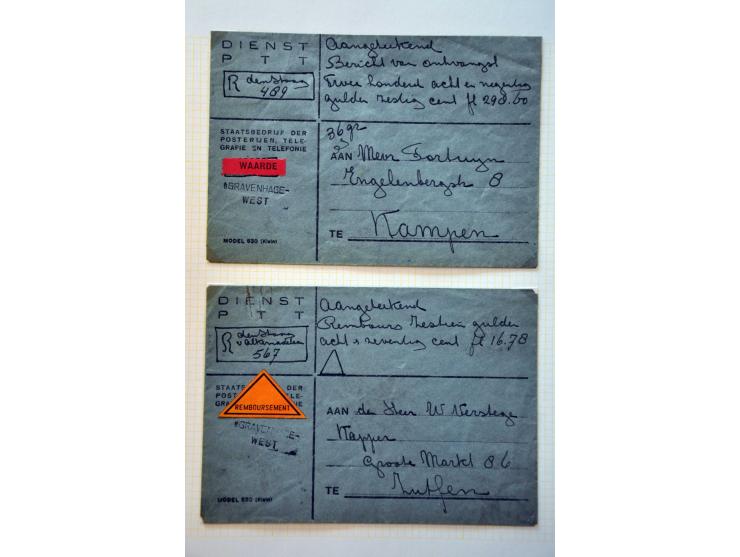 DIENST
PTT
R den Haag
489
STAATSBEDRIJF DER
POSTERIJEN, TELE-
GRAFIE EN TELEFONIE
WAARDE
'SGRAVENHAGE-
WEST
MODEL 630 (Klein)
Aangetekend
Bericht van ontvangst
Twee honderd acht en negentig
gulden zestig cent fl 298.60
36 gr
AAN Mevr Fortuyn
Engelenbergstr 8
TE Kampen
DIENST
PTT
R den Haag
567
STAATS DER
POST LE-
GRA FONIE
REMBOURSEMENT
'SGRAVENHAGE-
WEST
MODEL 630 (Klein)
Aangetekend
Rembours zestien gulden
acht & zeventig cent fl 16.78
AAN de Heer W Verstege
Kapper
Groote Markt 86
TE Zutfen